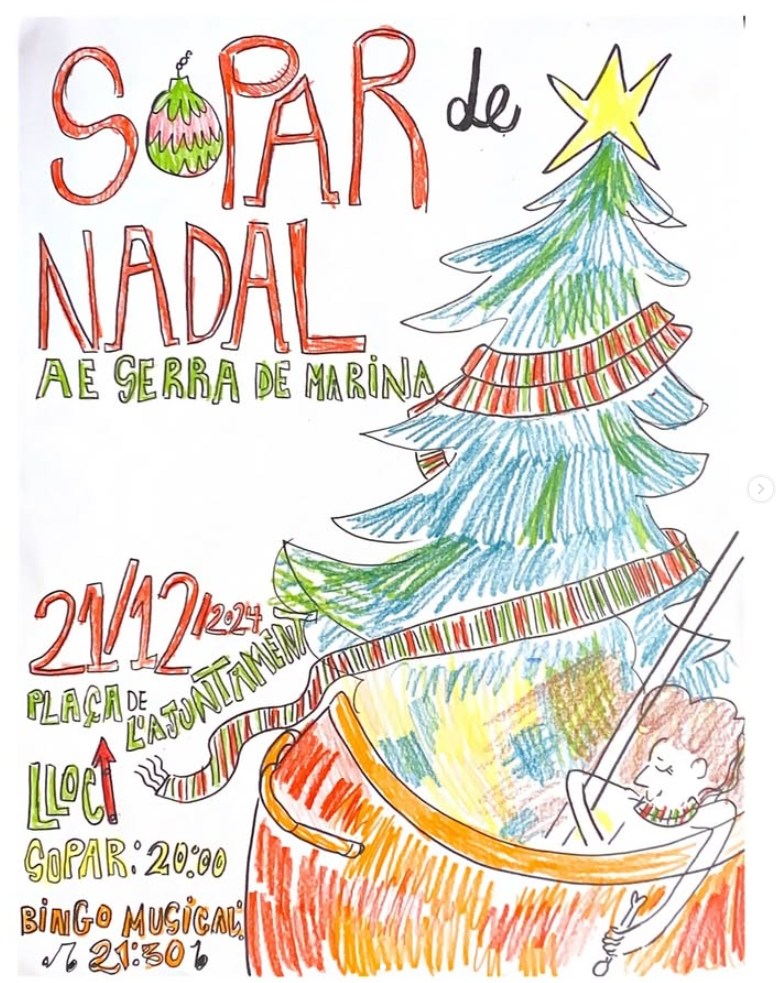 SOPAR de
NADAL
AE SERRA DE MARINA
21/12/2024
PLAÇA DE
L'AJUNTAMENT
LLOC
SOPAR: 20:00
BINGO MUSICAL:
21:30